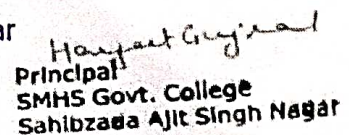 ar
Harjeet Gujral
Principal
SMHS Govt. College
Sahibzada Ajit Singh Nagar